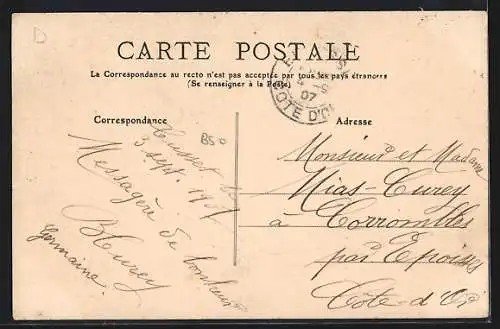 D
CARTE POSTALE
La Correspondance au recto n'est pas acceptée par tous les pays étrangers
(Se renseigner à la Poste)
07
COTE D'OR
Correspondance
B50
Adresse
3 sept. 19
Messagère de bonheur
Germaine
Monsieur et Madame
Mias-Curey
à Corrombles
par Epoisses
Côte-d'Or